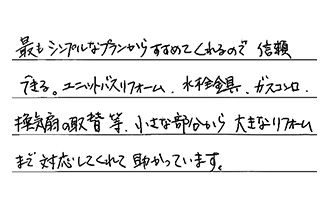 最もシンプルなプランからすすめてくれるので 信頼
できる。ユニットバスリフォーム、水栓金具、ガスコンロ、
換気扇の取替等、小さな部分から大きなリフォーム
まで対応してくれて助かっています。